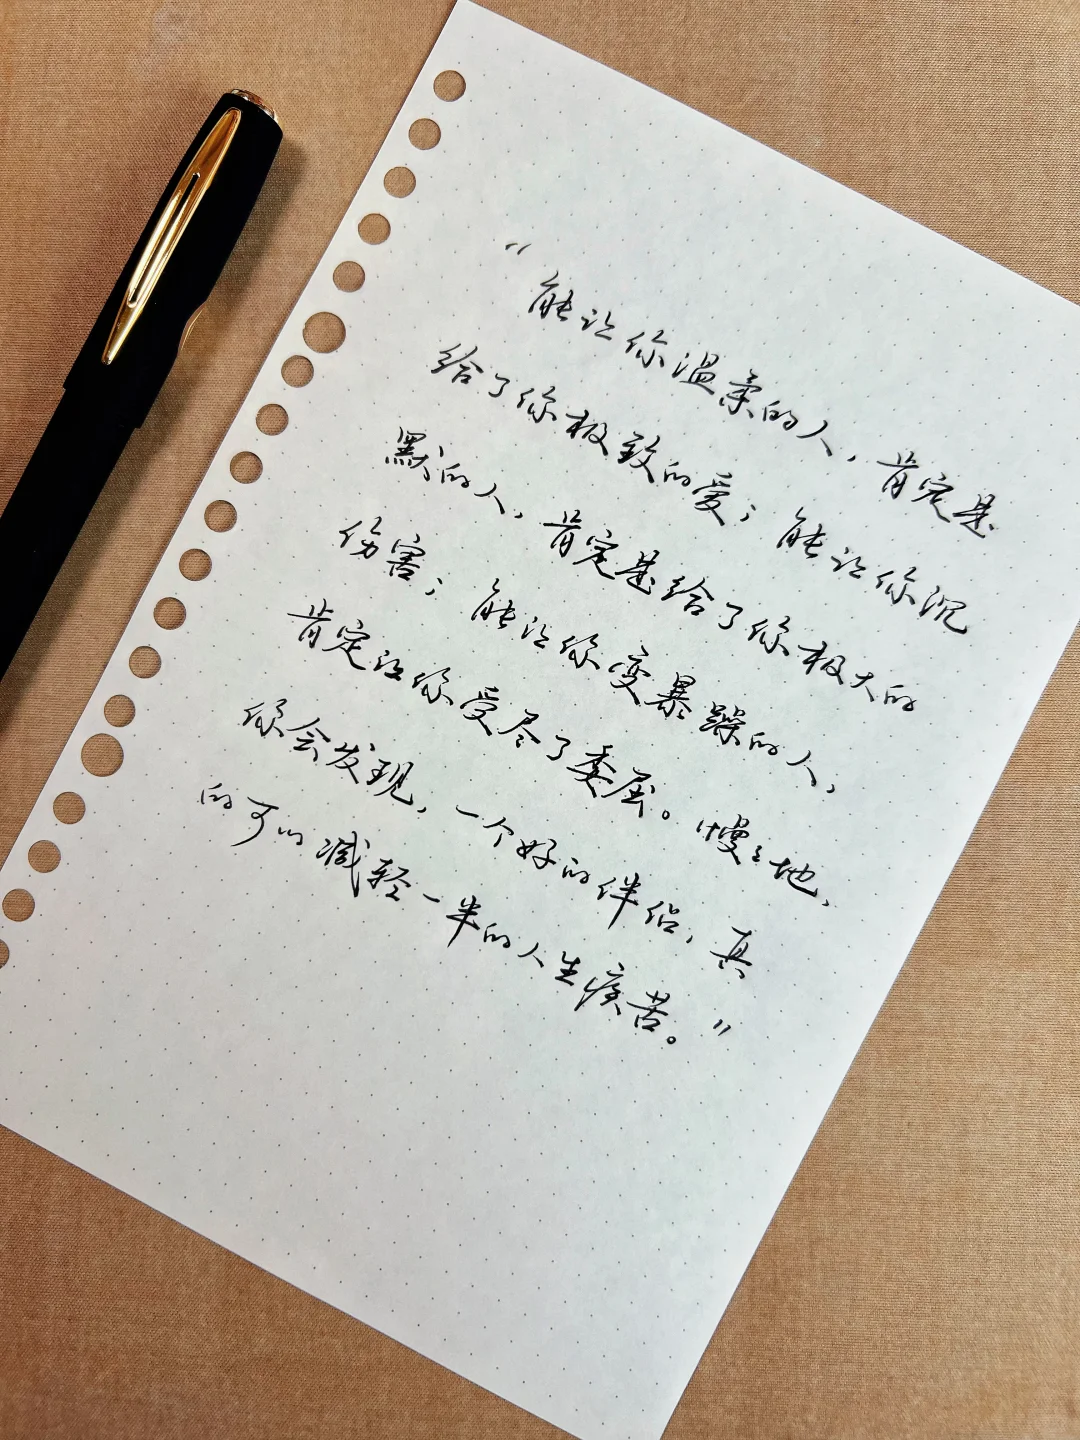 “能让你温柔的人，肯定是
给了你极致的爱；能让你沉
默的人，肯定是给了你极大的
伤害；能让你变暴躁的人，
肯定让你受尽了委屈。慢々地，
你会发现，一个好的伴侣，真
的可以减轻一半的人生疾苦。”